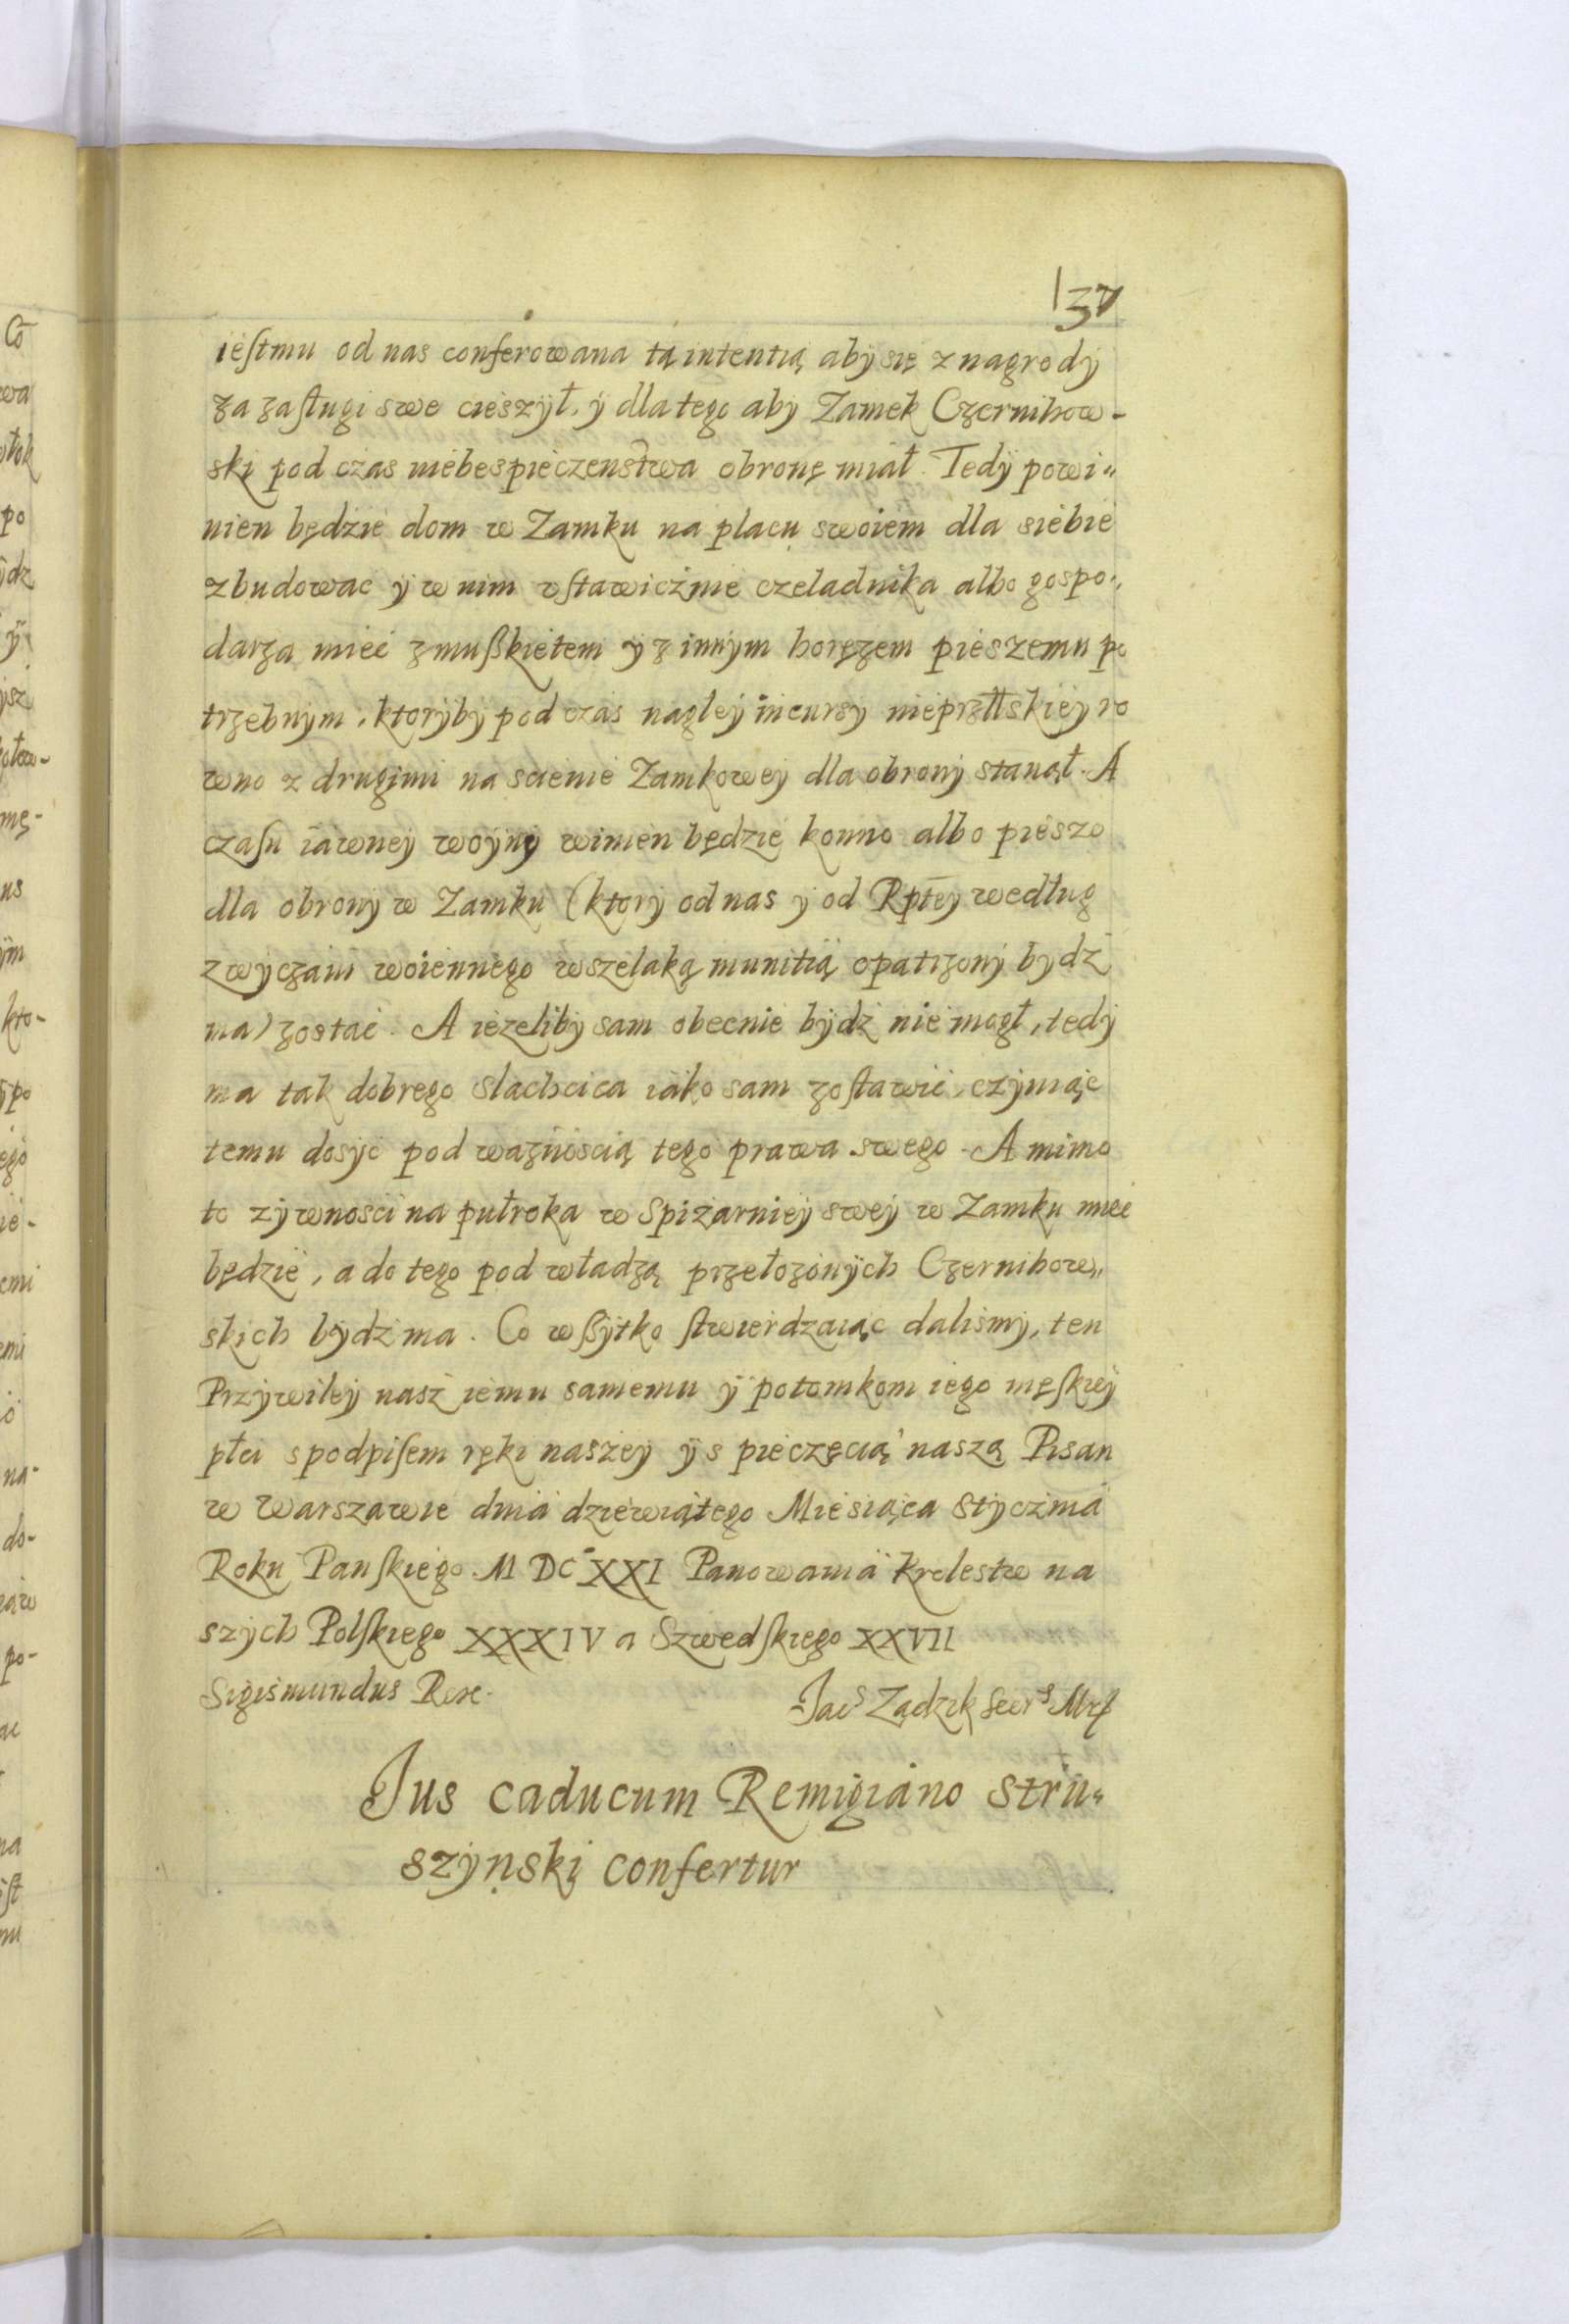 137
iestmu od nas conferowana tą intentią aby się z nagrody
za zasługi swe cieszył, y dla tego aby Zamek Czernihow-
ski pod czas niebespieczenstwa obronę miał. Tedy powi-
nien będzie dom w Zamku na placu swoiem dla siebie
zbudowac y w nim vstawicznie czeladnika albo gospo-
darza miec z mußkietem y z innym horężem pieszemu po
trzebnym, ktoryby pod czas nagłey incursy nieprzłłskiey ro
wno z drugimi na scienie Zamkowey dla obrony stanął. A
czasu iawney woyny winien będzie konno albo pieszo
dla obrony w Zamku (ktory od nas y od Rptey według
zwyczaiu woiennego wszelaką munitią opatrzony bydź
ma) zostac. A iezeliby sam obecnie bydź nie mogł, tedy
ma tak dobrego slachcica iako sam zostawic, czyniąc
temu dosyc pod waznoscią tego prawa swego. A mimo
to zywnosci na pułroka w Spizarniey swey w Zamku miec
będzie, a do tego pod władzą przełozonych Czernihow-
skich bydź ma. Co wßytko stwierdzaiąc dalismy, ten
Przywiley nasz iemu samemu y potomkom iego męskiey
płci s podpisem ręki naszey y s pieczęcią naszą Pisan
w Warszawie dnia dziewiątego Miesiąca Stycznia
Roku Panskiego M DC XXI Panowania Krolestw na
szych Polskiego XXXIV a Szwedskiego XXVII
Sigismundus Rex. Jacs Zadzik Secrs Mrs
Jus caducum Remigiano Stru-
szynski confertur
Co
wa
po
ydz
y
mę-
us
ym
kto-
po
ego
ie-
emi
emi
o
na-
do-
po-
ac
na
ist
mu